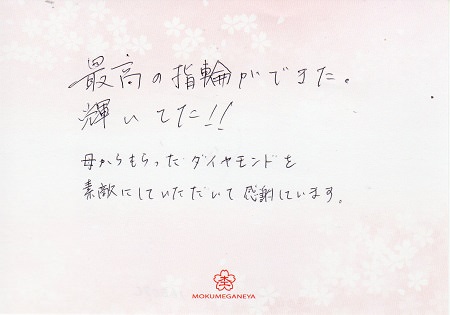 最高の指輪ができた。
輝いてた!!
母からもらったダイヤモンドを
素敵にしていただいて感謝しています。
MOKUMEGANEYA